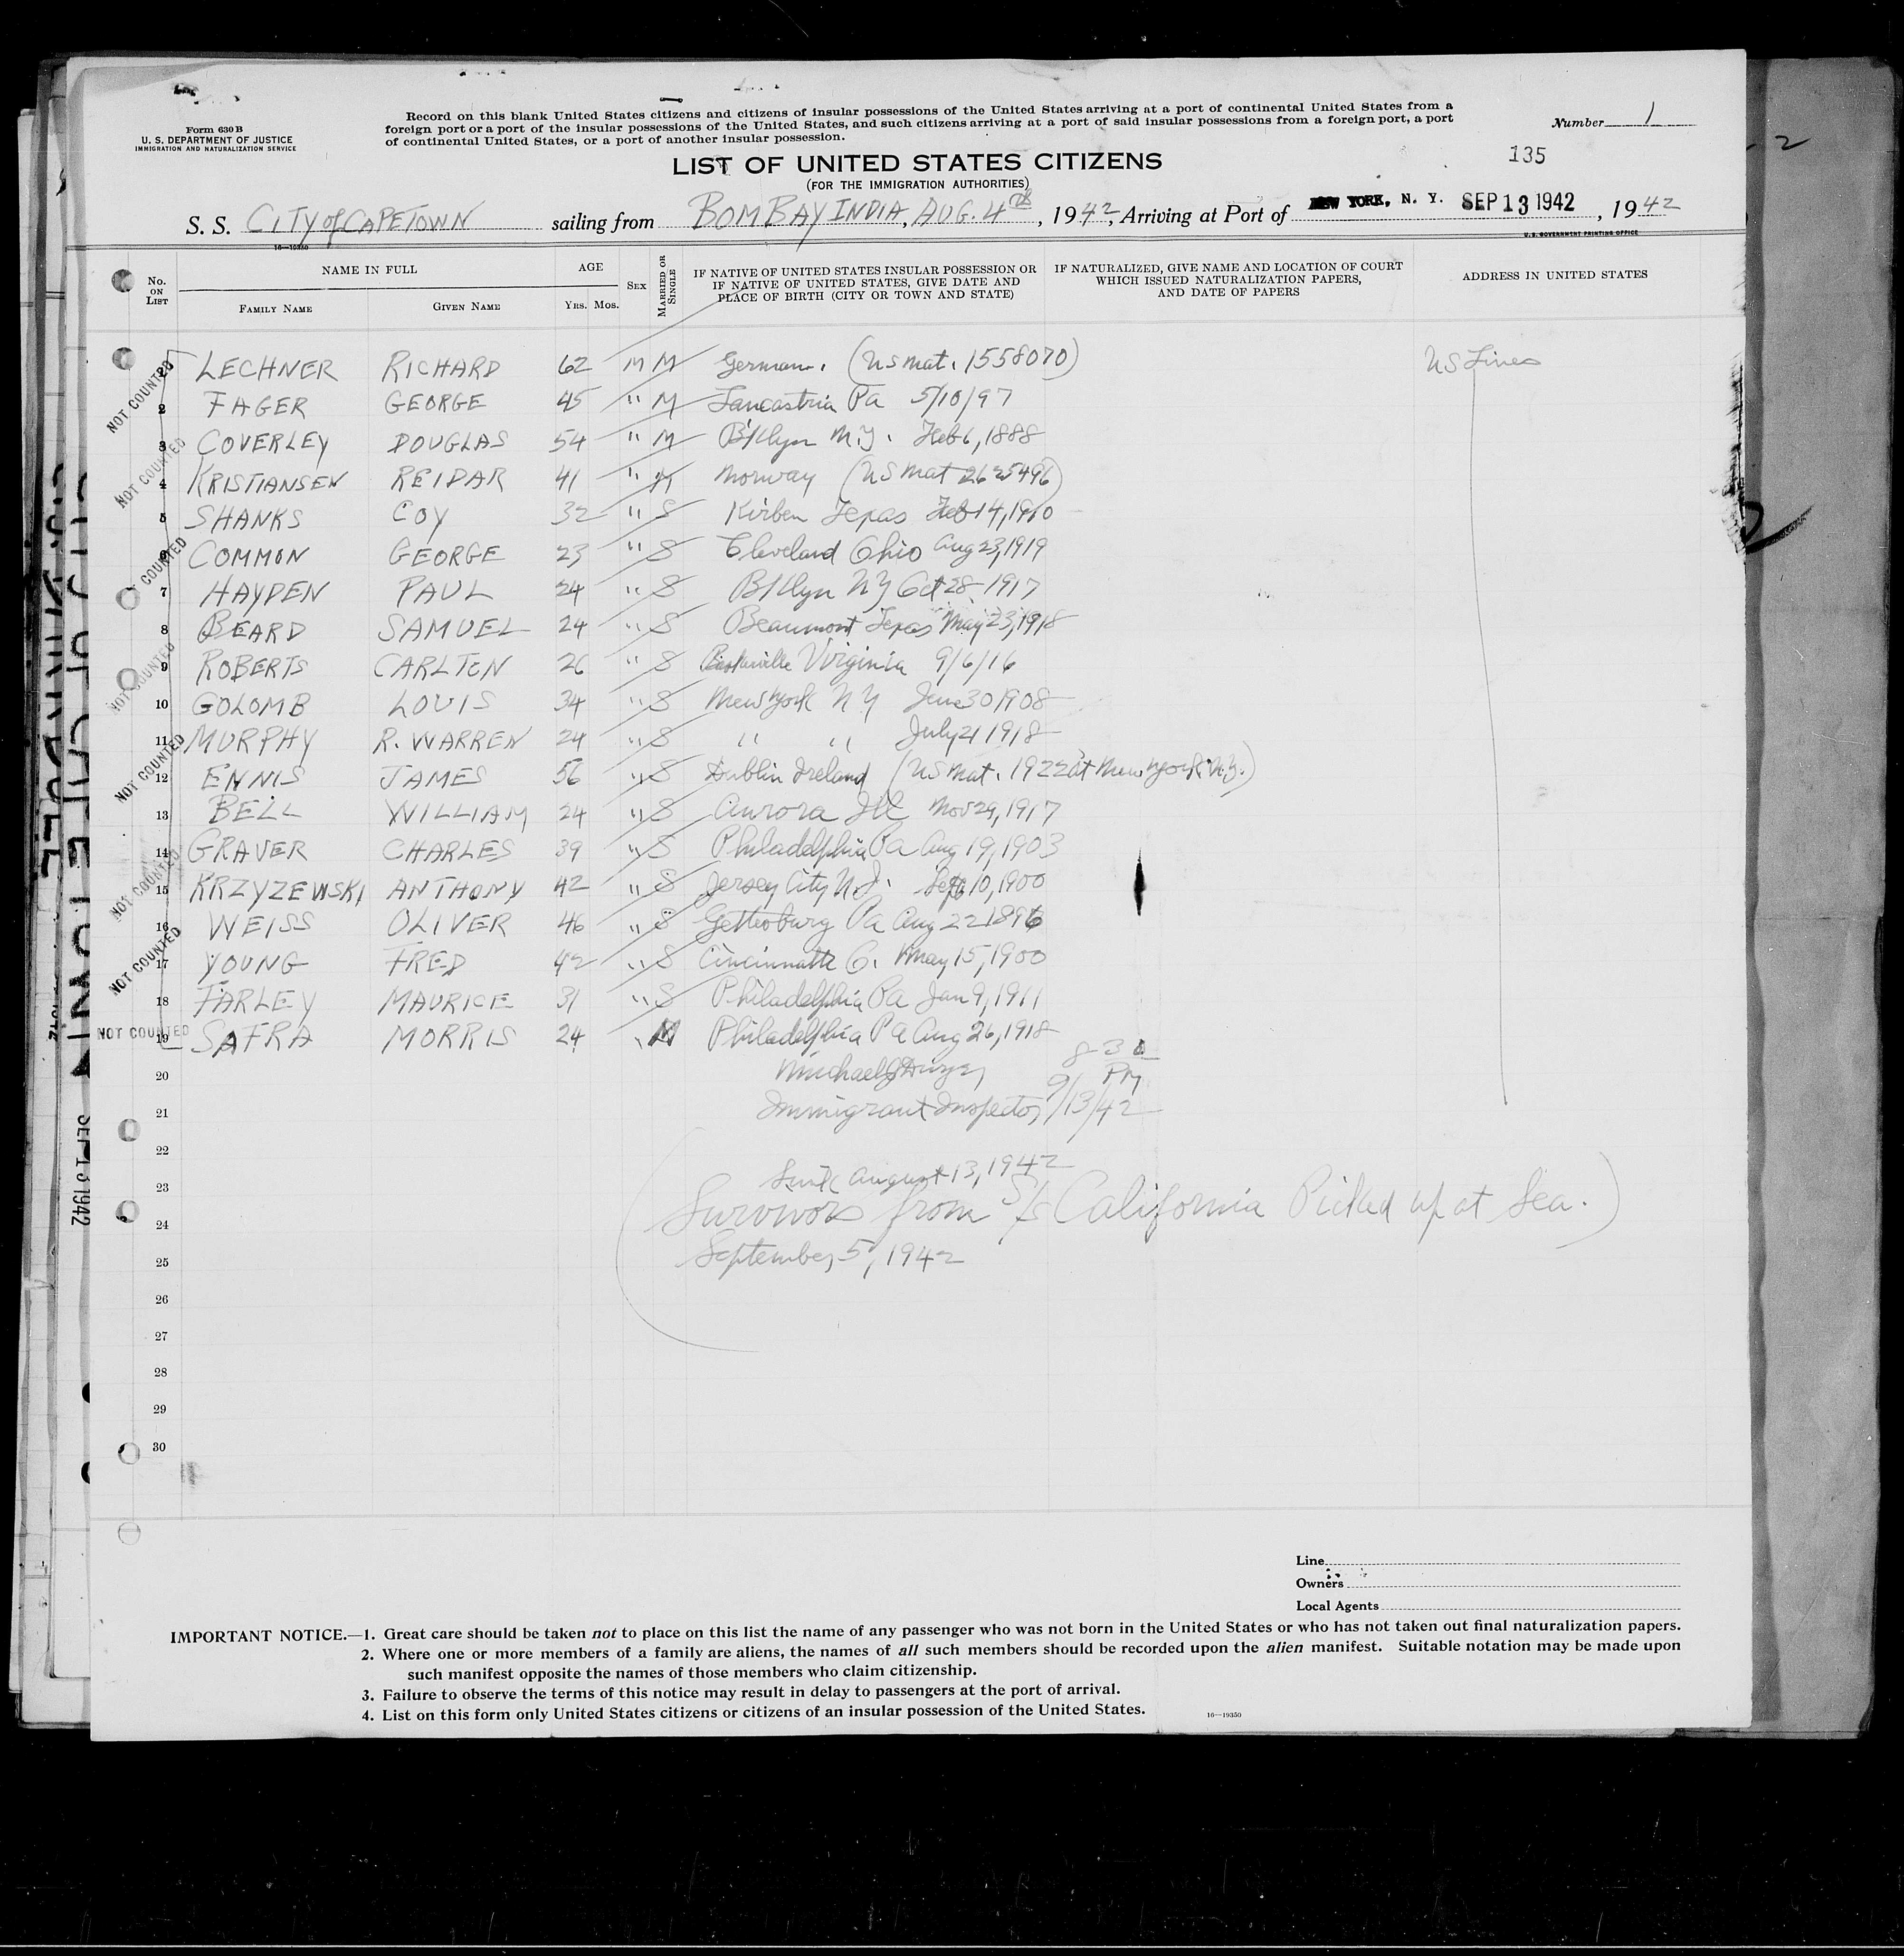 Form 630 B
U. S. DEPARTMENT OF JUSTICE
IMMIGRATION AND NATURALIZATION SERVICE
Record on this blank United States citizens and citizens of insular possessions of the United States arriving at a port of continental United States from a
foreign port or a port of the insular possessions of the United States, and such citizens arriving at a port of said insular possessions from a foreign port, a port
of continental United States, or a port of another insular possession.
Number 1
135
LIST OF UNITED STATES CITIZENS
(FOR THE IMMIGRATION AUTHORITIES)
S. S. CITY of CAPETOWN sailing from BOMBAY INDIA, AUG. 4th, 1942, Arriving at Port of NEW YORK, N. Y. SEP 13 1942, 1942
16—19350
U. S. GOVERNMENT PRINTING OFFICE
No. ON LIST
NAME IN FULL
FAMILY NAME
GIVEN NAME
AGE
YRS. MOS.
SEX
MARRIED OR SINGLE
IF NATIVE OF UNITED STATES INSULAR POSSESSION OR
IF NATIVE OF UNITED STATES, GIVE DATE AND
PLACE OF BIRTH (CITY OR TOWN AND STATE)
IF NATURALIZED, GIVE NAME AND LOCATION OF COURT
WHICH ISSUED NATURALIZATION PAPERS,
AND DATE OF PAPERS
ADDRESS IN UNITED STATES
LECHNER RICHARD 62 M M German. (US nat. 1558070) US Lines
2 FAGER GEORGE 45 " M Lancastria Pa 5/10/97
3 COVERLEY DOUGLAS 54 " M B'klyn N.Y. Feb 6, 1888
4 KRISTIANSEN REIDAR 41 " M Norway (US nat 2625496)
5 SHANKS COY 32 " S Kirben Texas Feb 14, 1910
6 COMMON GEORGE 23 " S Cleveland Ohio Aug 23, 1919
7 HAYDEN PAUL 24 " S B'klyn NY Oct 28 1917
8 BEARD SAMUEL 24 " S Beaumont Texas May 23, 1918
9 ROBERTS CARLTON 26 " S Virginia 9/6/16
10 GOLOMB LOUIS 34 " S New York NY June 30 1908
11 MURPHY R. WARREN 24 " S " " July 21 1918
12 ENNIS JAMES 56 " S Dublin Ireland (US nat. 1922 at New York N.Y.)
13 BELL WILLIAM 24 " S Aurora Ill Nov 29, 1917
14 GRAVER CHARLES 39 " S Philadelphia Pa Aug 19, 1903
15 KRZYZEWSKI ANTHONY 42 " S Jersey City N.J. Sept 10, 1900
16 WEISS OLIVER 46 " S Gettesburg Pa Aug 22 1896
17 YOUNG FRED 42 " S Cincinnatti O. May 15, 1900
18 FARLEY MAURICE 31 " S Philadelphia Pa Jan 9, 1911
19 SAFRA MORRIS 24 " M Philadelphia Pa Aug 26, 1918
NOT COUNTED
NOT COUNTED
COUNTED
NOT COUNTED
NOT COUNTED
NOT COUNTED
NOT COUNTED
NOT COUNTED
20 Michael J Dwyer 8-30 PM
21 Immigrant Inspector 9/13/42
22
23 Sunk August 13, 1942
24 (Survivors from S/S California Picked up at Sea.)
25 September 5, 1942
26
27
28
29
30
Line
Owners
Local Agents
IMPORTANT NOTICE.—1. Great care should be taken not to place on this list the name of any passenger who was not born in the United States or who has not taken out final naturalization papers.
2. Where one or more members of a family are aliens, the names of all such members should be recorded upon the alien manifest. Suitable notation may be made upon
such manifest opposite the names of those members who claim citizenship.
3. Failure to observe the terms of this notice may result in delay to passengers at the port of arrival.
4. List on this form only United States citizens or citizens of an insular possession of the United States.
16—19350
CITY OF CAPE TOWN SEP 13 1942